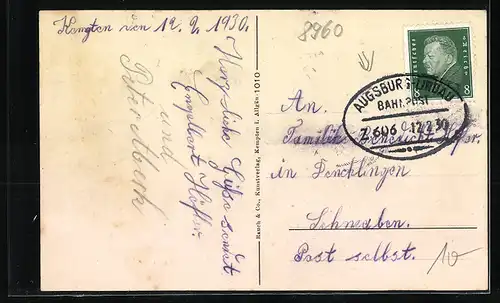 Kempten den 12. 2. 1930.
8960
Herzliche Grüße sendet
Engelbert Höfler.
und
Peter
Rauch & Co., Kunstverlag, Kempten i. Allgäu 1010
Deutsches Reich
8 8
AUGSBURG
BAHNPOST
Z 606 12.2.30
An
Familie
in
Schwaben.
Post selbst.
10